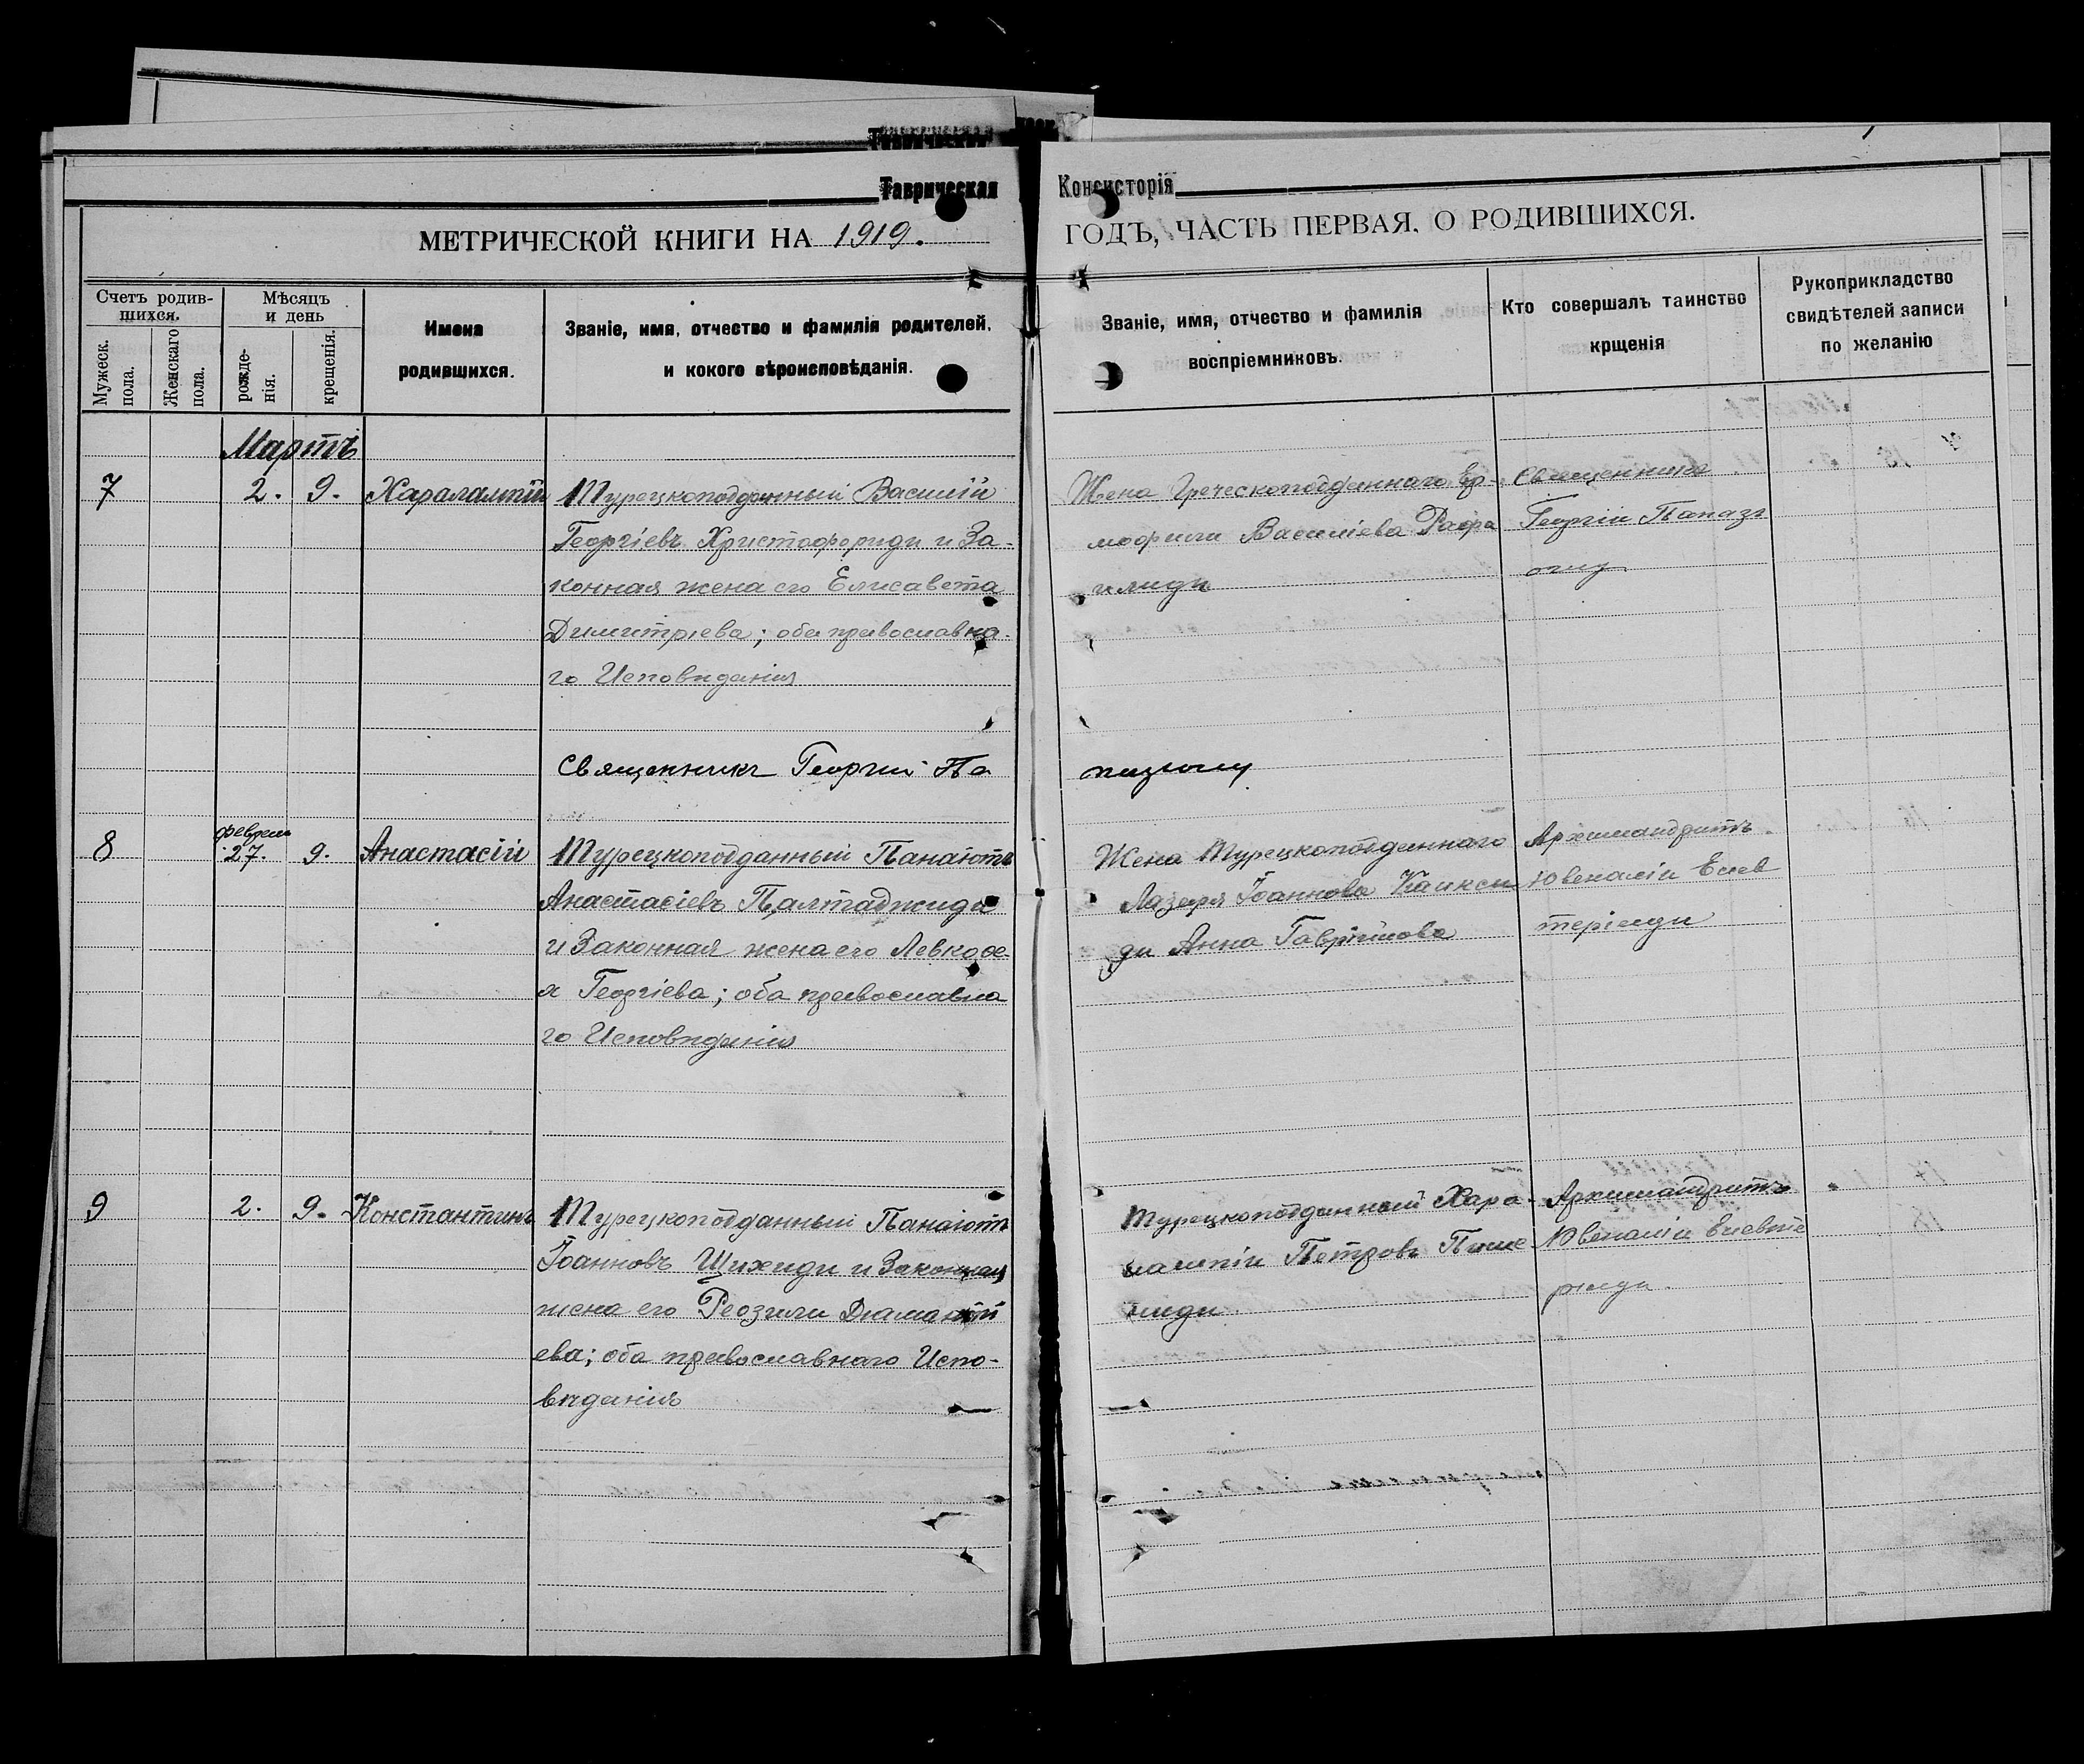 Таврическая Консисторія
МЕТРИЧЕСКОЙ КНИГИ НА 1919. ГОДЪ, ЧАСТЬ ПЕРВАЯ, О РОДИВШИХСЯ.
Счетъ родив-
шихся.
Мужеск.
пола.
Женскаго
пола.
Мѣсяцъ
и день
рожде-
нія.
крещенія.
Имена
родившихся.
Званіе, имя, отчество и фамилія родителей,
и кокого вѣроисповѣданія.
Званіе, имя, отчество и фамилія
воспріемниковъ.
Кто совершалъ таинство
крщенія
Рукоприкладство
свидѣтелей записи
по желанію
Мартъ
7
2. 9.
Харалампій
Турецкоподданный Василій
Георгіевъ Христофориди и За-
конная жена его Елисавета
Димитріева; оба православна-
го Исповѣданія
Жена Греческоподданнаго
Василіева
Священникъ
Георгій Папаз
Священникъ Георгій Па
8
феврал
27. 9.
Анастасій
Турецкоподданный Панаіотъ
Анастасіевъ Палтаджиди
и Законная жена его Левкоѳе-
я Георгіева; оба православна
го Исповѣданія
Жена Турецкоподданнаго
Лазаря Іоаннова
ди Анна Гавріилова
Архимандритъ
Ювеналій Елев
теріади
9
2. 9.
Константинъ
Турецкоподданный Панаіотъ
Іоанновъ Шихиди и Законная
жена его
ева; оба православнаго Испо-
вѣданія
Турецкоподданный Хара-
лампій Петровъ
Архимандритъ
Ювеналій Елевте
ріади.